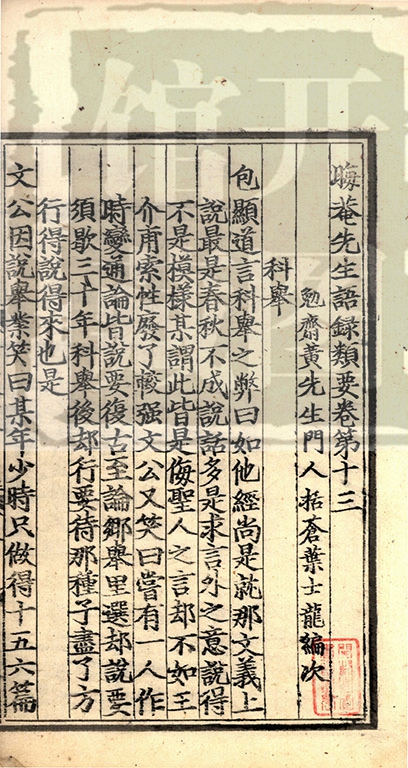 晦菴先生語録類要卷第十三
勉齋黃先生門人括蒼葉士龍編次
科舉
包顯道言科舉之弊曰如他經尚是就那文義上
說最是春秋不成說話多是求言外之意說得
不是模樣某謂此皆是侮聖人之言却不如王
介甫索性廢了較强文公又笑曰嘗有一人作
時變通論皆說要復古至論鄉舉里選却說要
須歇三十年科舉後却行要待那種子盡了方
行得說得來也是
文公因說舉業笑曰某年少時只做得十五六篇